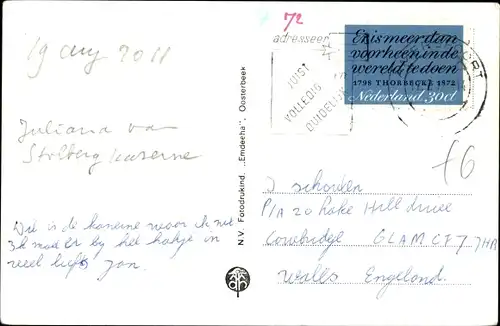 72
19 aug 2011
Juliana van
Stolberg kazerne
Dit is de kazerne waar ik nit
3 k mad er by het hokje in
veel liefs Jan.
N.V. Fotodrukind. „Emdeeha", Oosterbeek
adresseer
JUIST
VOLLEDIG
DUIDELIJK
Er is meer dan
voorheen in de
wereld te doen
1798 THORBECKE 1872
Nederland 30ct
f6
J schouten
P/A 20 Lake Hill drive
Cowbridge GLAM CF7 7HR
Walls Engeland.